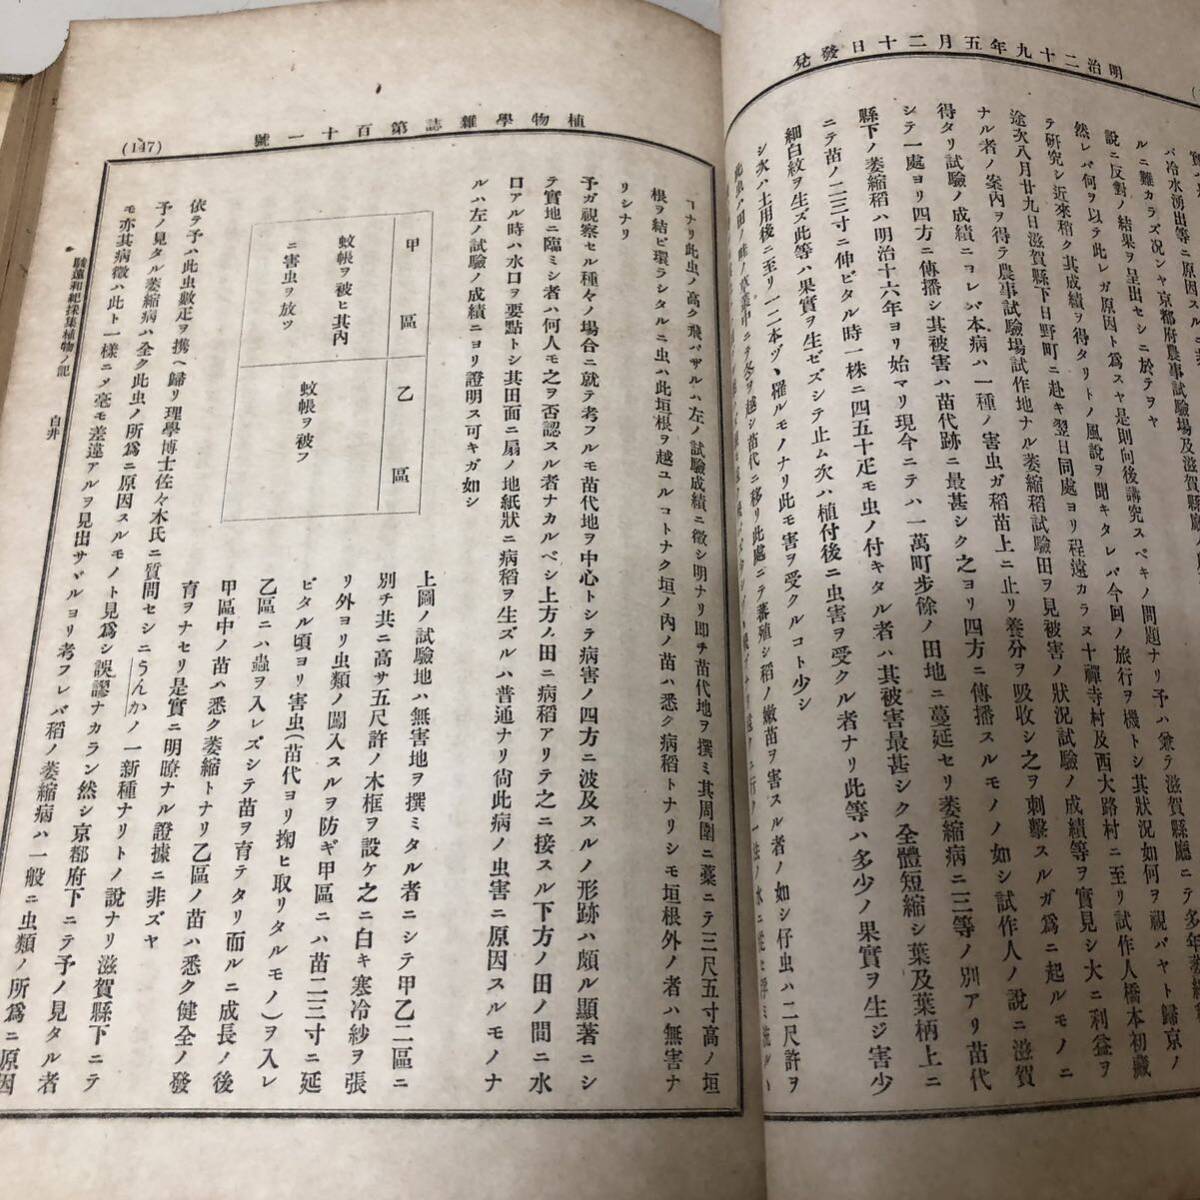 明治二十九年五月二十日發兌
ルニ難カラズ況シヤ京都府農事試驗場及滋賀縣
バ冷水湧出等ニ原因スル
說ニ反對ノ結果ヲ呈出セシニ於テヲヤ
然レバ何ヲ以テ此レガ原因ト爲スヤ是則向後講究スベキノ問題ナリ予ハ兼テ滋賀縣廳ニテ多年萎縮
テ硏究シ近來稍ク其成績ヲ得タリトノ風說ヲ聞キタレバ今回ノ旅行ヲ機トシ其狀況如何ヲ視バヤト歸京ノ
途次八月廿九日滋賀縣下日野町ニ赴キ翌日同處ヨリ程遠カラヌ十禪寺村及西大路村ニ至リ試作人橋本初藏
ナル者ノ案內ヲ得テ農事試驗場試作地ナル萎縮稻試驗田ヲ見被害ノ狀況試驗ノ成績等ヲ實見シ大ニ利益ヲ
得タリ試驗ノ成績ニヨレバ本病ハ一種ノ害虫ガ稻苗上ニ止リ養分ヲ吸收シ之ヲ刺擊スルガ爲ニ起ルモノニ
シテ一處ヨリ四方ニ傳播シ其被害ハ苗代跡ニ最甚シク之ヨリ四方ニ傳播スルモノノ如シ試作人ノ說ニ滋賀
縣下ノ萎縮稻ハ明治十六年ヨリ始マリ現今ニテハ一萬町步餘ノ田地ニ蔓延セリ萎縮病ニ二三等ノ別アリ苗代
ニテ苗ノ二三寸ニ伸ビタル時一株ニ四五十疋モ虫ノ付キタル者ハ其被害最甚シク全體短縮シ葉及葉柄上ニ
細白紋ヲ生ズ此等ハ果實ヲ生ゼズシテ止ム次ハ植付後ニ虫害ヲ受クル者ナリ此等ハ多少ノ果實ヲ生ジ害少
シ次ハ土用後ニ至リ一二本ヅヽ罹ルモノナリ此モ害ヲ受クルコト少シ
此虫ハ田ノ畦ノ草叢中ニテ冬ヲ越シ苗代ニ移リ此處ニテ蕃殖シ稻ノ嫩苗ヲ害スル者ノ如シ仔虫ハ二尺許ヲ
植物學雜誌第百十一號
(147)
ナリ此虫ノ高ク飛バザルハ左ノ試驗成績ニ徵シ明ナリ卽チ苗代地ヲ撰ミ其周圍ニ藁ニテ三尺五寸高ノ垣
根ヲ結ビ環ラシタルニ虫ハ此垣根ヲ越ユルコトナク垣ノ內ノ苗ハ悉ク病稻トナリシモ垣根外ノ者ハ無害ナ
リシナリ
予ガ視察セル種々ノ場合ニ就テ考フルモ苗代地ヲ中心トシテ病害ノ四方ニ波及スルノ形跡ハ頗ル顯著ニシ
テ實地ニ臨ミシ者ハ何人モ之ヲ否認スル者ナカルベシ上方ノ田ニ病稻アリテ之ニ接スル下方ノ田ノ間ニ水
口アル時ハ水口ヲ要點トシ其田面ニ扇ノ地紙狀ニ病稻ヲ生ズルハ普通ナリ尙此病ノ虫害ニ原因スルモノナ
ルハ左ノ試驗ノ成績ニヨリ證明ス可キガ如シ
甲區
乙區
蚊帳ヲ被ヒ其內
ニ害虫ヲ放ツ
蚊帳ヲ被フ
上圖ノ試驗地ハ無害地ヲ撰ミタル者ニシテ甲乙二區ニ
別チ共ニ高サ五尺許ノ木框ヲ設ケ之ニ白キ寒冷紗ヲ張
リ外ヨリ虫類ノ闖入スルヲ防ギ甲區ニハ苗二三寸ニ延
ビタル頃ヨリ害虫(苗代ヨリ掬ヒ取リタルモノ)ヲ入レ
乙區ニハ蟲ヲ入レズシテ苗ヲ育テタリ而ルニ成長ノ後
甲區中ノ苗ハ悉ク萎縮トナリ乙區ノ苗ハ悉ク健全ノ發
育ヲナセリ是實ニ明瞭ナル證據ニ非ズヤ
依テ予ハ此虫數疋ヲ携ヘ歸リ理學博士佐々木氏ニ質問セシニうんかノ一新種ナリトノ說ナリ滋賀縣下ニテ
予ノ見タル萎縮病ハ全ク此虫ノ所爲ニ原因スルモノト見爲シ誤謬ナカラン然シ京都府下ニテ予ノ見タル者
モ亦其病徵ハ此ト一樣ニシテ毫モ差違アルヲ見出サヾルヨリ考フレバ稻ノ萎縮病ハ一般ニ虫類ノ所爲ニ原因
駿遠和紀採集植物ノ記
白井